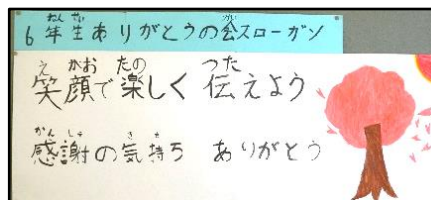 6年生ありがとうの会スローガン
笑顔で楽しく 伝えよう
感謝の気持ち ありがとう